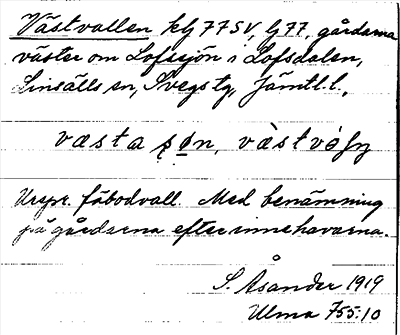 Västvallen klj 77 SV, lj 77, gårdarna
väster om Lofssjön i Lofsdalen,
Linsälls sn, Svegs tg, Jämtl. l.,
væsta ʂøn,
Urspr. fäbodvall. Med benämning
på gårdarna efter innehavarna.
S. Åsander 1919
Ulma 755:10